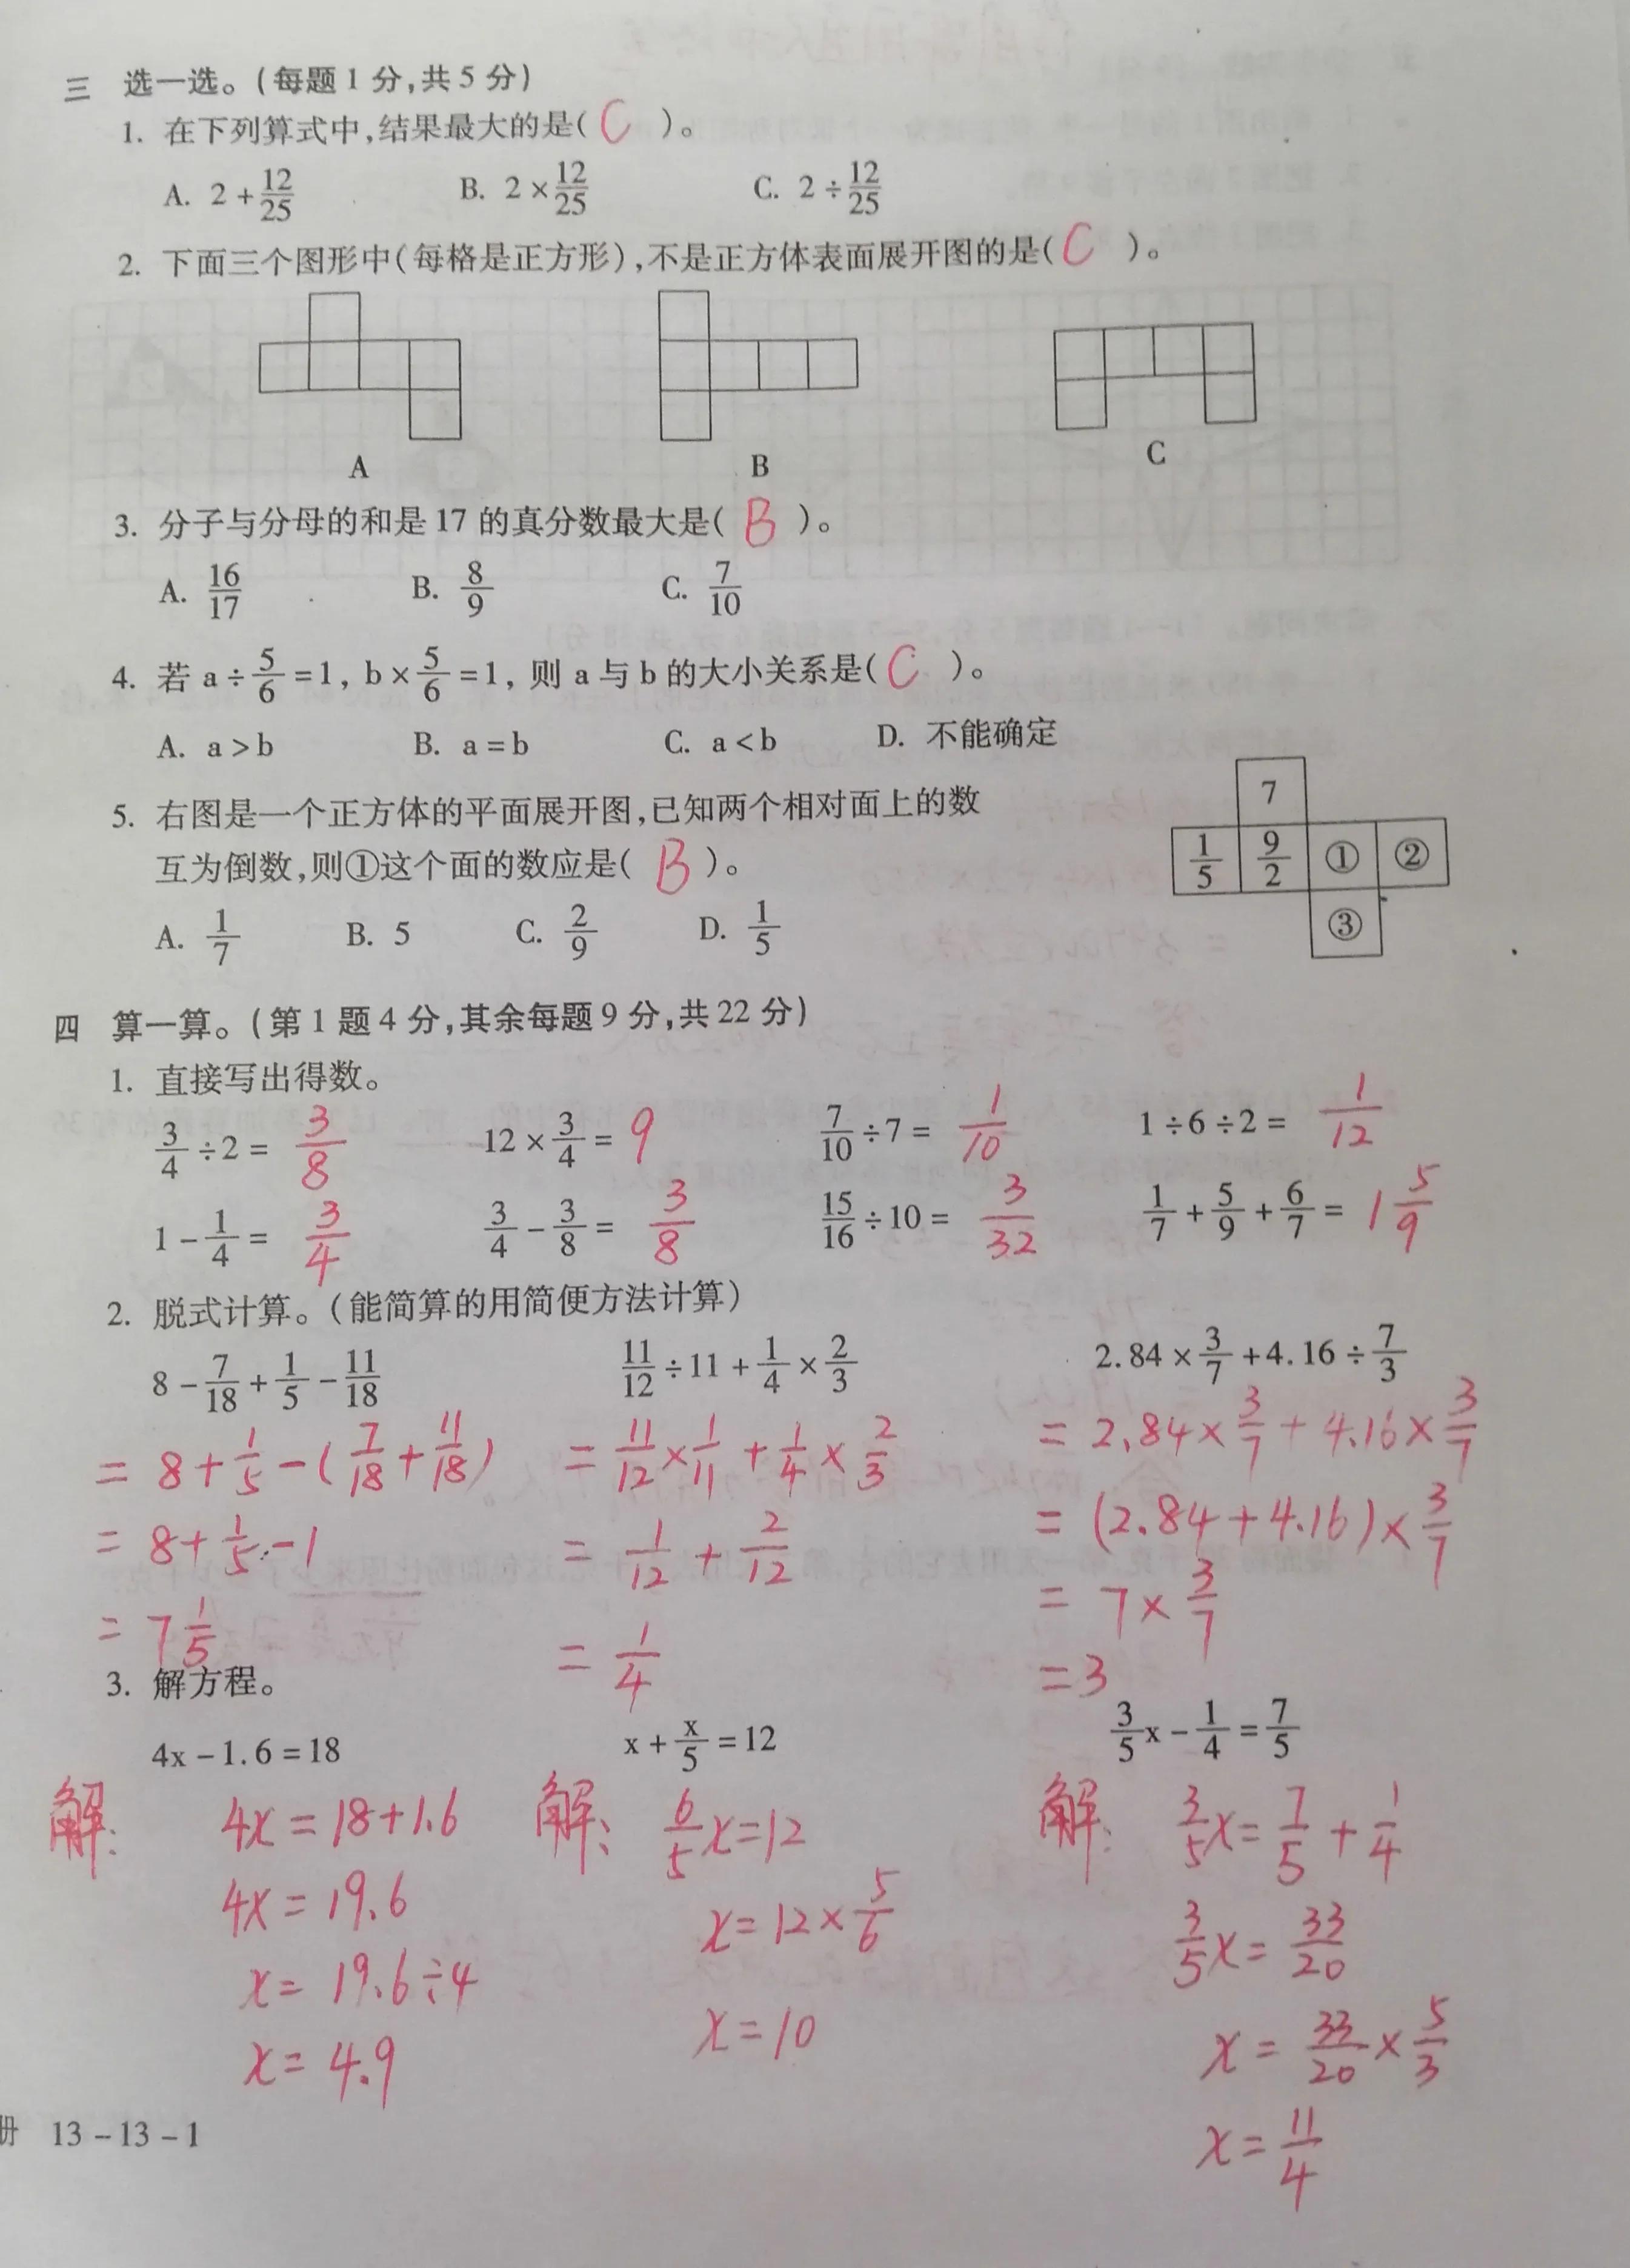 三 选一选。(每题1分,共5分)
1. 在下列算式中,结果最大的是( C )。
A. 2+12/25 B. 2×12/25 C. 2÷12/25
2. 下面三个图形中(每格是正方形),不是正方体表面展开图的是( C )。
A B C
3. 分子与分母的和是17的真分数最大是( B )。
A. 16/17 B. 8/9 C. 7/10
4. 若a÷5/6=1, b×5/6=1, 则a与b的大小关系是( C )。
A. a>b B. a=b C. a<b D. 不能确定
5. 右图是一个正方体的平面展开图,已知两个相对面上的数
互为倒数,则①这个面的数应是( B )。
A. 1/7 B. 5 C. 2/9 D. 1/5
7
1/5 9/2 ① ②
③
四 算一算。(第1题4分,其余每题9分,共22分)
1. 直接写出得数。
3/4÷2= 3/8 12×3/4= 9 7/10÷7= 1/10 1÷6÷2= 1/12
1-1/4= 3/4 3/4-3/8= 3/8 15/16÷10= 3/32 1/7+5/9+6/7= 1 5/9
2. 脱式计算。(能简算的用简便方法计算)
8-7/18+1/5-11/18 11/12÷11+1/4×2/3 2.84×3/7+4.16÷7/3
=8+1/5-(7/18+11/18) =11/12×1/11+1/4×2/3 =2.84×3/7+4.16×3/7
=8+1/5-1 =1/12+2/12 =(2.84+4.16)×3/7
=7 1/5 =1/4 =7×3/7
=3
3. 解方程。
4x-1.6=18 x+x/5=12 3/5x-1/4=7/5
解: 4x=18+1.6 解: 6/5x=12 解: 3/5x=7/5+1/4
4x=19.6 x=12×5/6 3/5x=33/20
x=19.6÷4 x=10 x=33/20×5/3
x=4.9 x=11/4
册 13-13-1